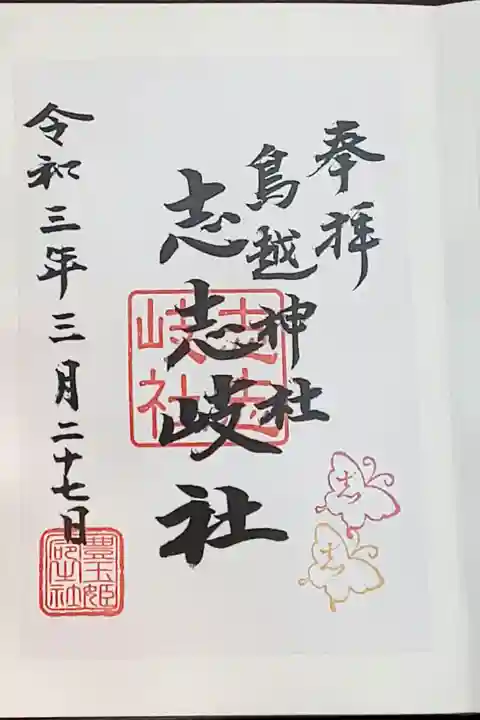 奉拝
鳥越神社
志志岐社
志志
岐社
令和三年三月二十七日
豊玉姫
志
志